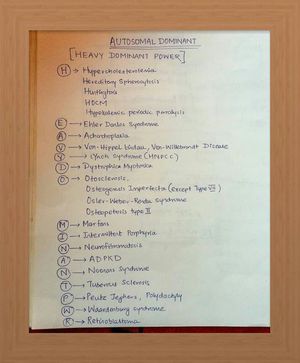 AUTOSOMAL DOMINANT
[HEAVY DOMINANT POWER]
H → Hypercholesterolemia
Hereditary Spherocytosis
Huntingtons
HOCM
Hypokalemic periodic paralysis
E → Ehler Danlos Syndrome
A → Achondroplasia
V → Von-Hippel Lindau, Von-Willebrandt Disease
Y → Lynch Syndrome (HNPCC)
D → Dystrophica Myotonica
O → Otosclerosis,
Osteogenesis Imperfecta (except Type VII)
Osler-Weber-Rendu syndrome
Osteopetosis type II
M → Marfans
I → Intermittent Porphyria
N → Neurofibromatosis
A → ADPKD
N → Noonans Syndrome
T → Tuberous Sclerosis
P → Peutz Jeghers, Polydactyly
W → Waardenburg syndrome
R → Retinoblastoma